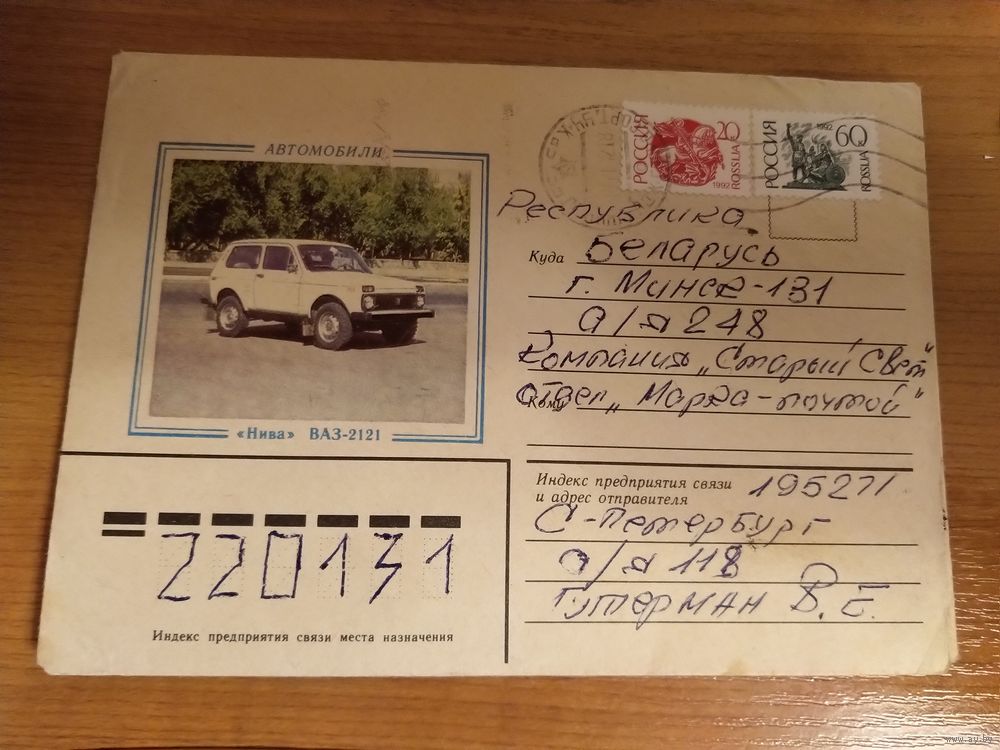 АВТОМОБИЛИ
«Нива» ВАЗ-2121
РОССИЯ 20 1992 ROSSIJA
РОССИЯ 1992 60к ROSSIJA
Республика
Куда Беларусь
г. Минск-131
а/я 248
Компания „Старый Свет"
Кому отдел „Марка-почтой"
Индекс предприятия связи
и адрес отправителя 195271
С-Петербург
а/я 118
Гутерман В.Е.
220131
Индекс предприятия связи места назначения
www.ay.by